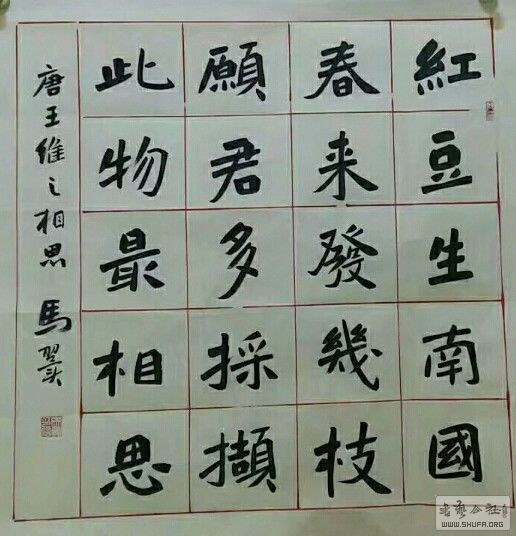 紅豆生南國
春来發幾枝
願君多採擷
此物最相思
唐王維之相思 馬翼
WWW.SHUFA.ORG